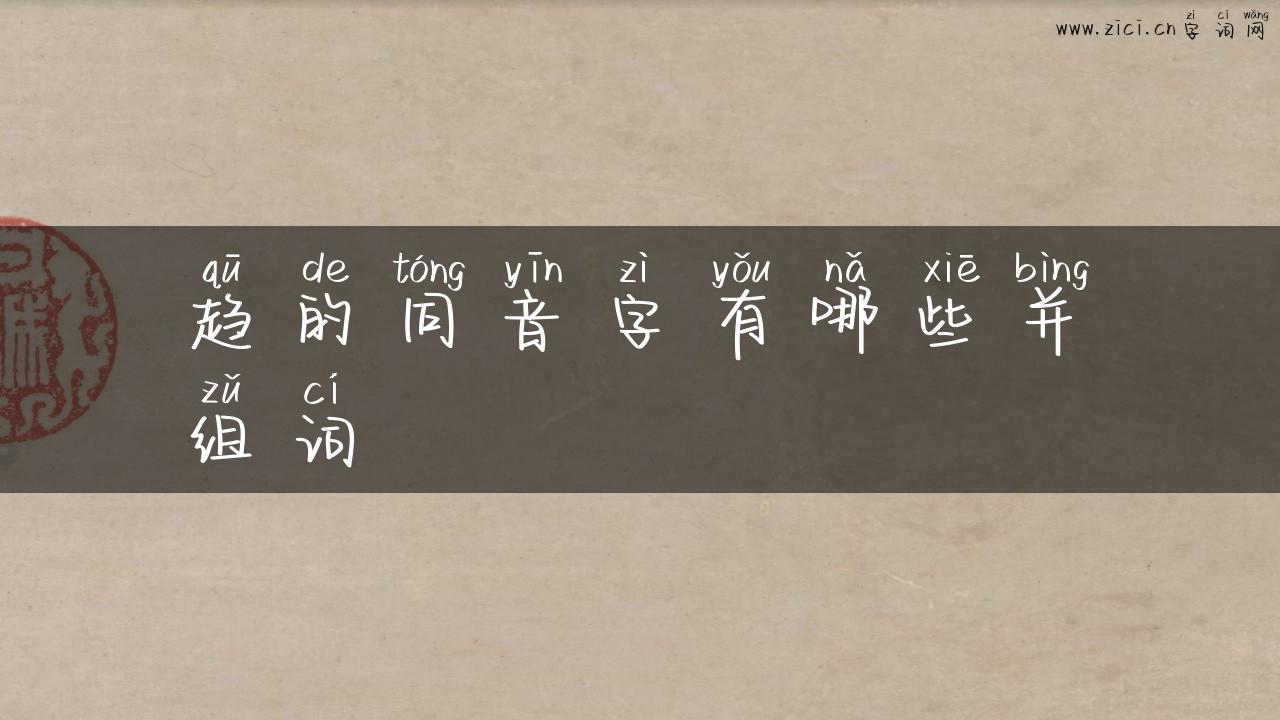 zì cí wǎng
www.zici.cn 字词网
qū de tóng yīn zì yǒu nǎ xiē bìng
趋的同音字有哪些并
zǔ cí
组词